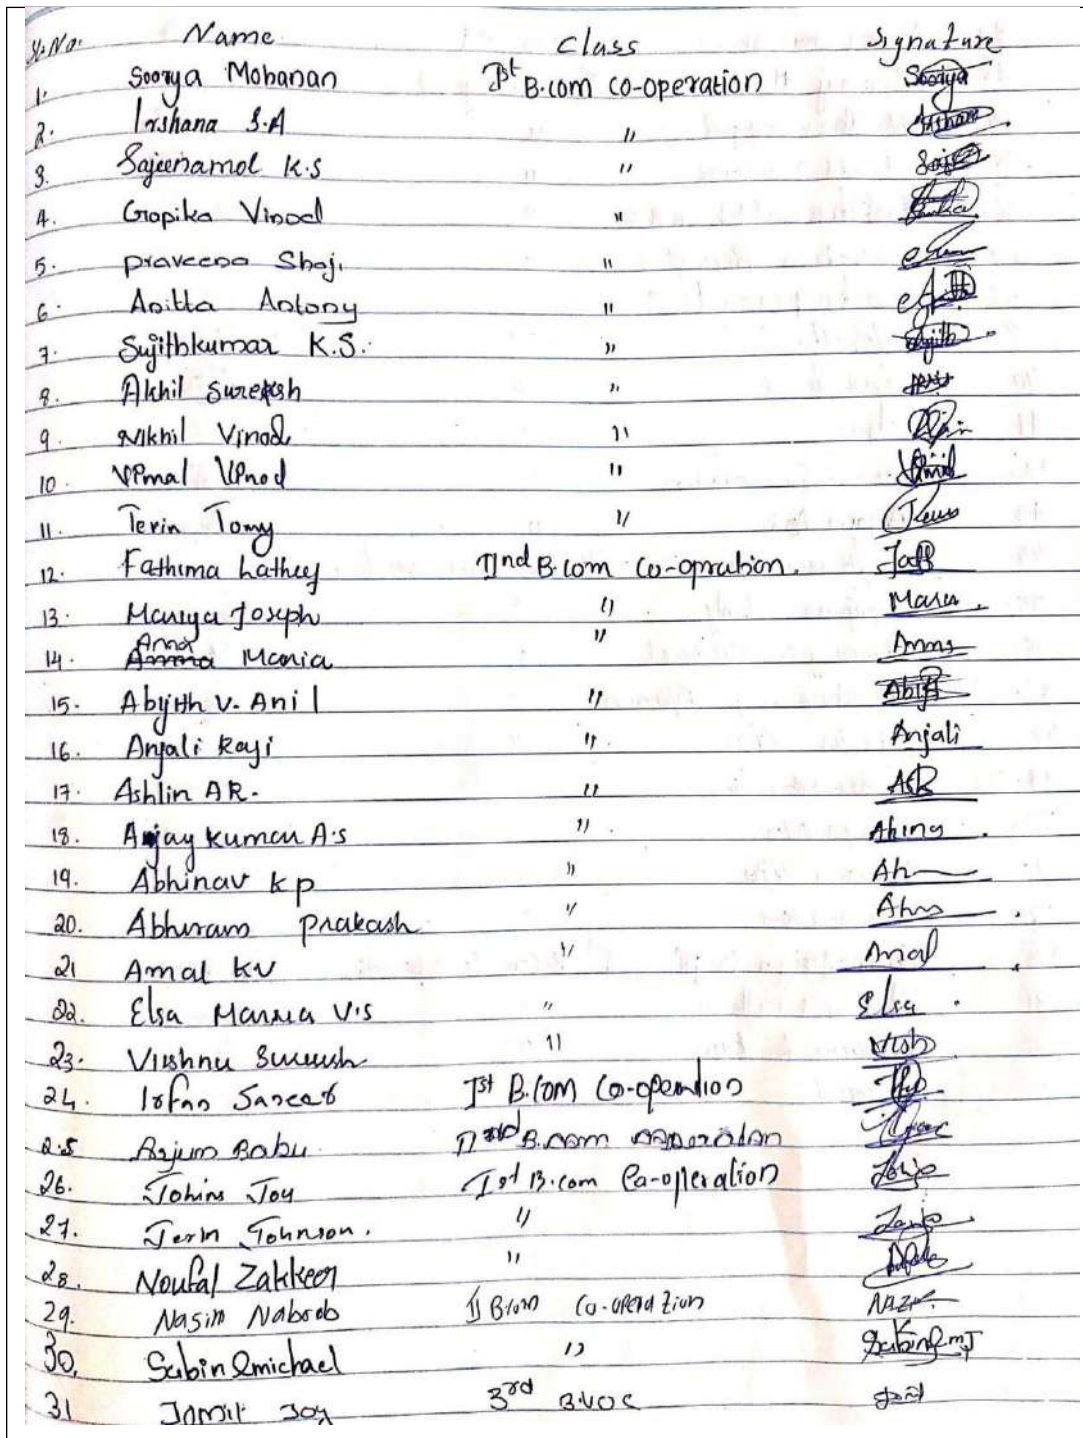 Sl.No. Name Class Signature
1. Soorya Mohanan Ist B.com co-operation Soorya
2. Irshana S.A "
3. Sajeenamol K.S "
4. Gopika Vinod "
5. Praveena Shaji "
6. Anitta Antony "
7. Sujithkumar K.S. "
8. Akhil Suresh "
9. Nikhil Vinod "
10. Vimal Vinod "
11. Terin Tomy "
12. Fathima Latheef IInd B.com co-opration.
13. Mariya Joseph "
14. Anna Maria "
15. Abijith V. Anil "
16. Anjali Raji " Anjali
17. Ashlin AR. "
18. Ajay Kumar A.S "
19. Abhinav K P "
20. Abhiram Prakash "
21 Amal KV " Amal
22. Elsa Maria V.S " Elsa
23. Vishnu Suresh "
24. Irfan Ist B.com Co-operation
25 Arjun Babu IInd B.com
26. Joy Ist B.com Co-operation
27. Jerin Johnson. "
28. Noufal Zakkeer "
29. Nasim II B.com Co-operation
30. Sabin "
31 Joy 3rd B.VOC